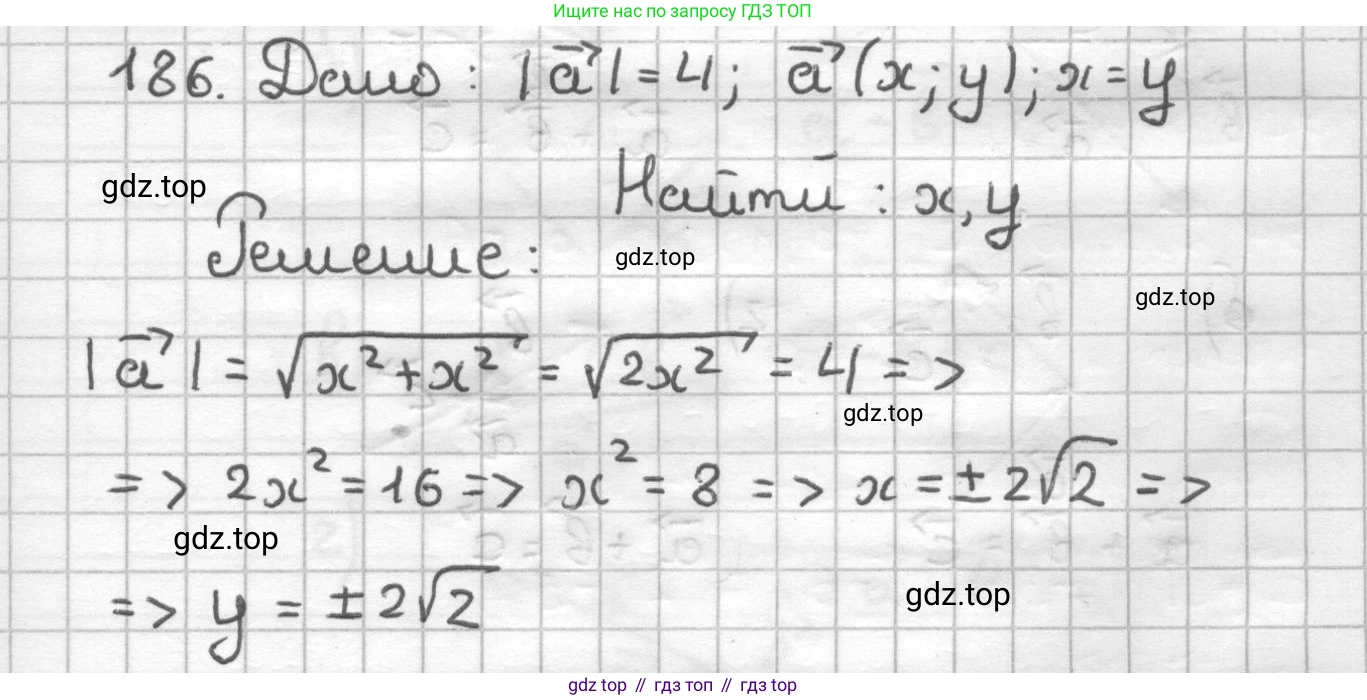 Ищите нас по запросу ГДЗ ТОП
186. Дано: |a⃗| = 4; a⃗(x; y); x = y
gdz.top
Найти: x, y
Решение:
gdz.top
gdz.top
|a⃗| = √(x² + x²) = √(2x²) = 4 =>
gdz.top
=> 2x² = 16 => x² = 8 => x = ± 2√2 =>
gdz.top
=> y = ± 2√2
gdz.top
gdz top // гдз топ // gdz top